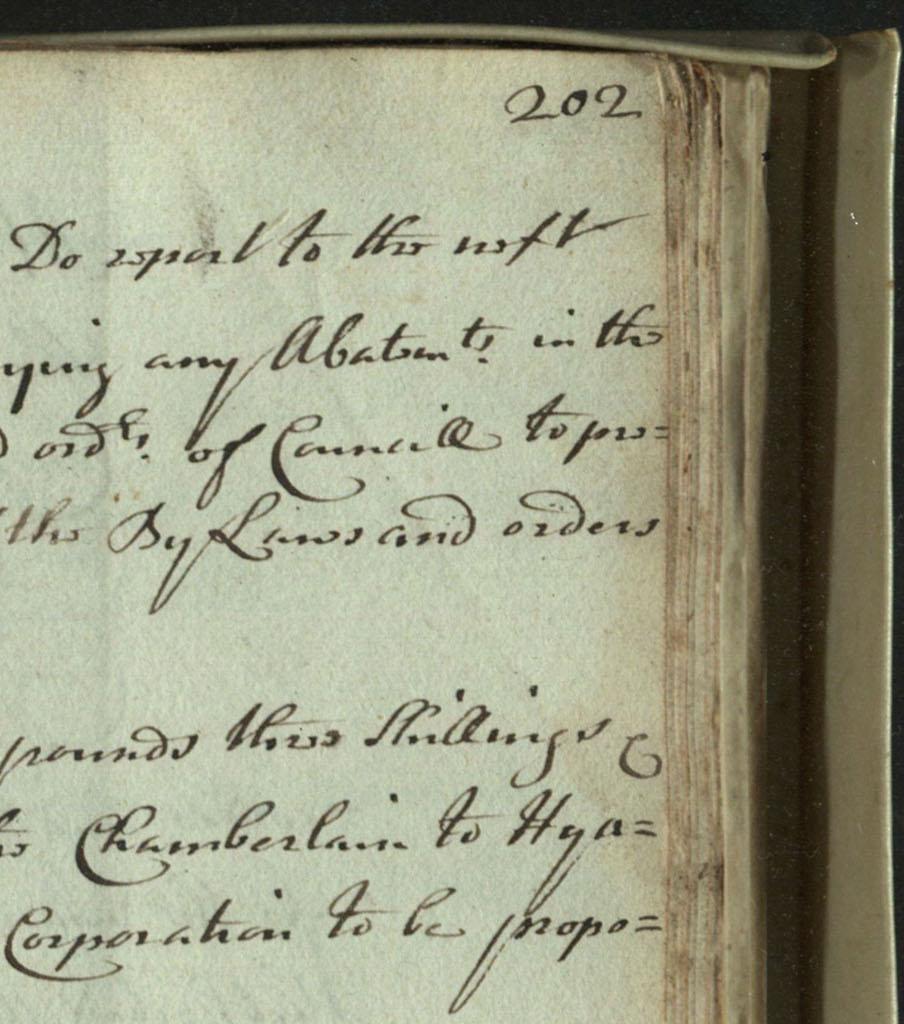 202
Do report to the next
ying any Abatemts. in the
ordrs. of Councill to pre=
the By Laws and orders
pounds three Shillings &
Chamberlain to Hya=
Corporation to be propo=